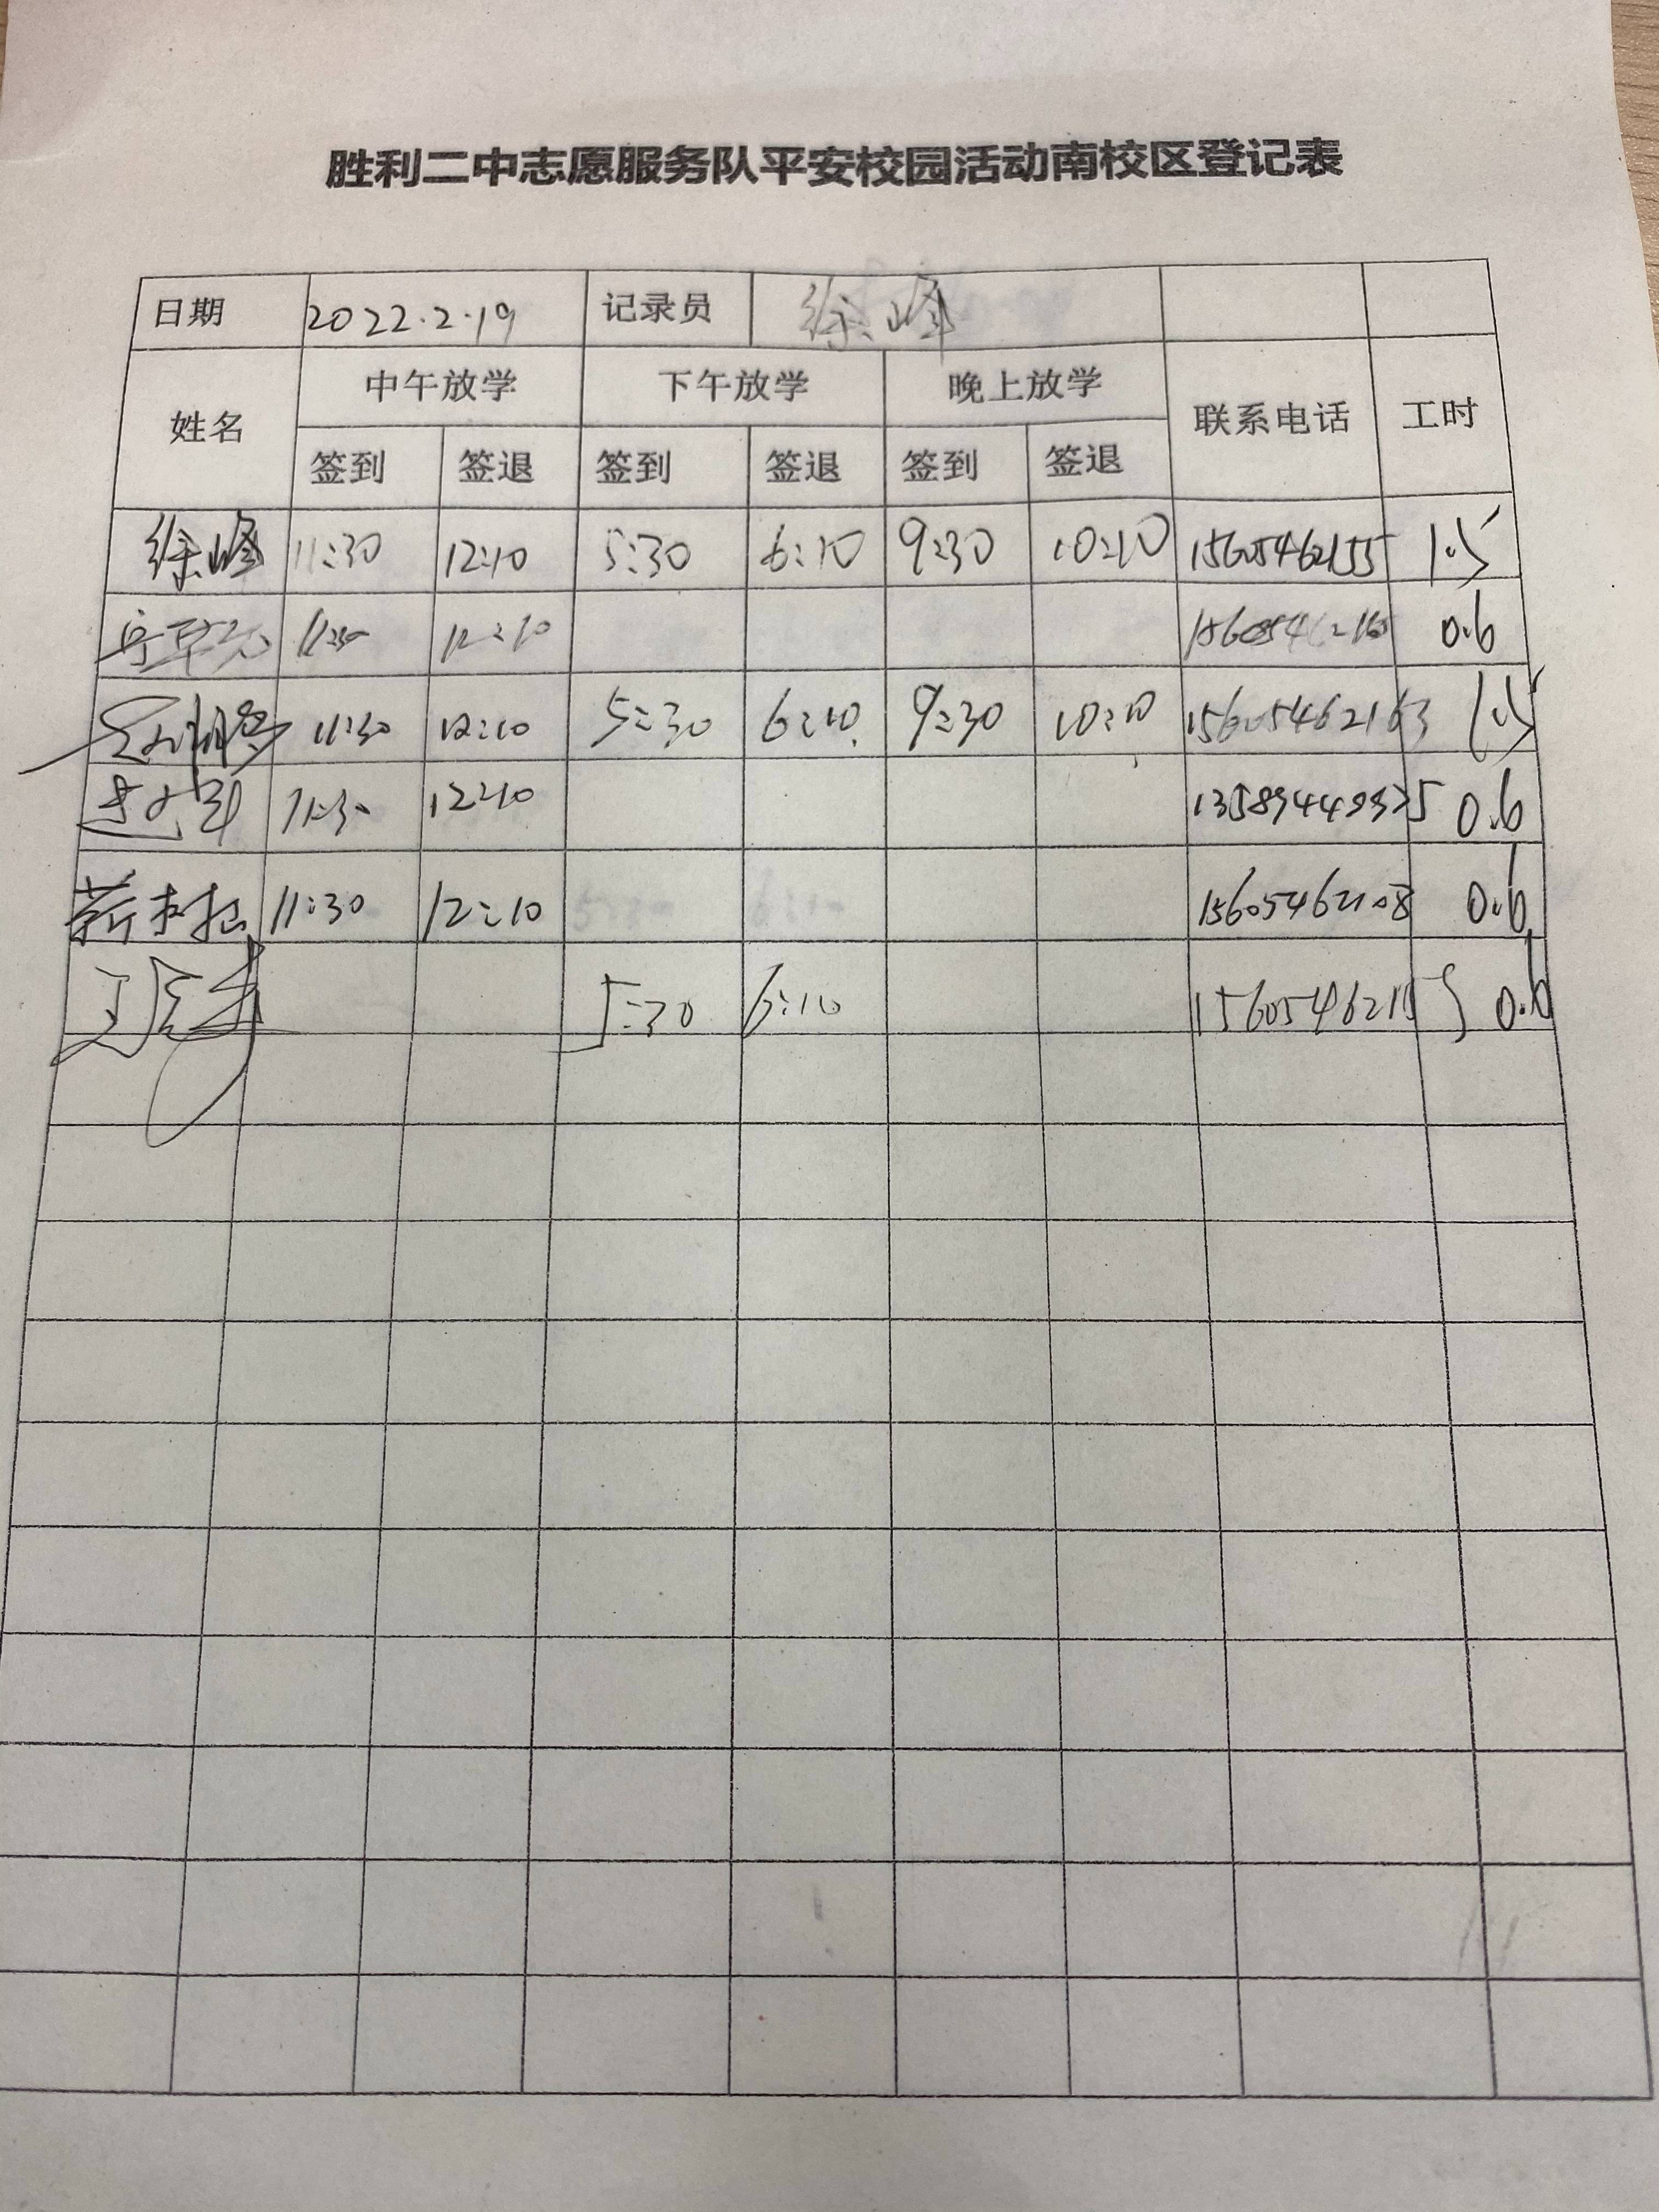 胜利二中志愿服务队平安校园活动南校区登记表
日期 2022.2.19 记录员 徐峰
姓名 中午放学 下午放学 晚上放学 联系电话 工时
签到 签退 签到 签退 签到 签退
徐峰 11:30 12:10 5:30 6:10 9:30 10:10 15605462155 1.5
11:30 12:10 0.6
11:30 12:10 5:30 6:10 9:30 10:10 15605462163 1.5
11:30 12:10 0.6
11:30 12:10 15605462108 0.6
5:30 6:10 0.6